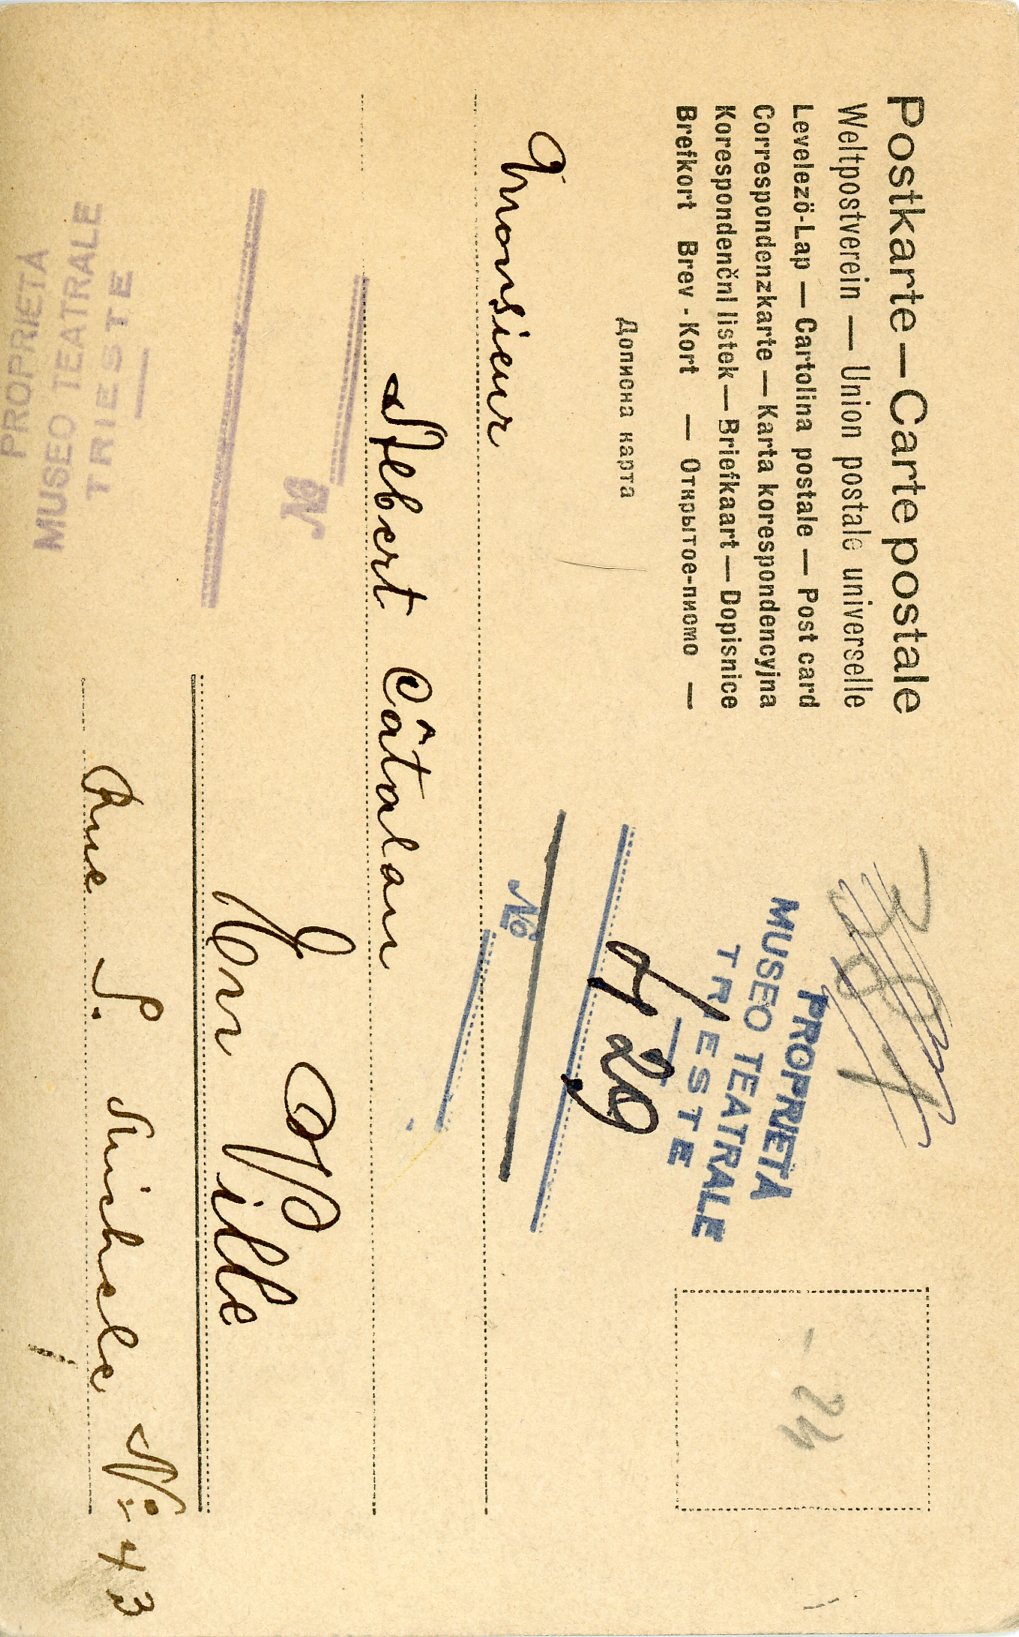 Postkarte — Carte postale
Weltpostverein — Union postale universelle
Levelezö-Lap — Cartolina postale — Post card
Correspondenzkarte — Karta korespondencyjna
Korespondenčnì listek — Briefkaart — Dopisnice
Brefkort Brev-Kort — Открытое-письмо —
Дописна карта
381
PROPRIETÀ
MUSEO TEATRALE
TRIESTE
429
№
- 24
Monsieur
Albert Câtalan
En Ville
Rue S. Michele No 43
№
PROPRIETÀ
MUSEO TEATRALE
TRIESTE